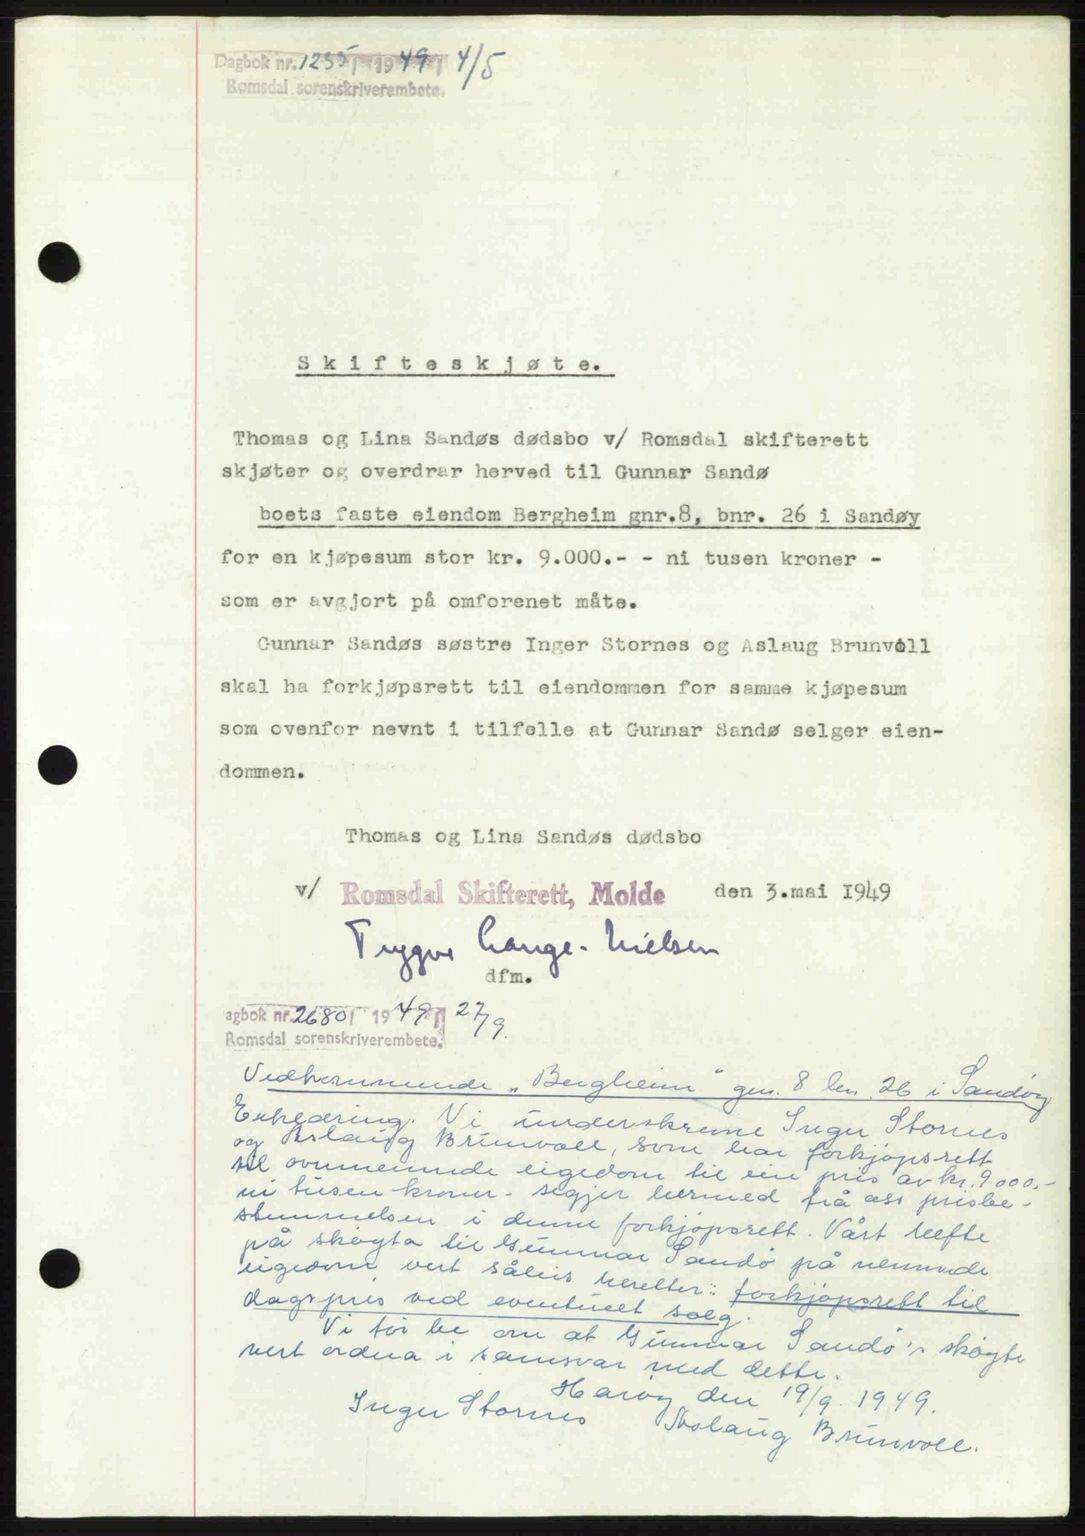 Dagbok nr. 1255 / 1949 4/5
Romsdal sorenskriverembete.
Skifteskjøte.
Thomas og Lina Sandøs dødsbo v/ Romsdal skifterett
skjøter og overdrar herved til Gunnar Sandø
boets faste eiendom Bergheim gnr.8, bnr. 26 i Sandøy
for en kjøpesum stor kr. 9.000.- - ni tusen kroner -
som er avgjort på omforenet måte.
Gunnar Sandøs søstre Inger Stornes og Aslaug Brunvoll
skal ha forkjøpsrett til eiendommen for samme kjøpesum
som ovenfor nevnt i tilfelle at Gunnar Sandø selger eien-
dommen.
Thomas og Lina Sandøs dødsbo
v/ Romsdal Skifterett, Molde den 3.mai 1949
Trygve Lange-Nielsen
dfm.
agbok nr. 2680 / 1949 27/9.
Romsdal sorenskriverembete.
Vedkommende „Bergheim" gnr. 8 bnr. 26 i Sandøy
Erklæring. Vi underskrevne Inger Stornes
og Aslaug Brunvoll, som har forkjøpsrett
til ovennemnde eigedom til ein pris av kr. 9000.-
ni tusen kroner - segjer hermed frå oss prisbe-
stemmelsen i denne forkjøpsrett. Vårt hefte
på skøyta til Gunnar Sandø på nemnde
eigedom vert såleis heretter: forkjøpsrett til
dagspris ved eventuelt salg.
Vi tør be om at Gunnar Sandø's skøyte
vert ordna i samsvar med dette.
Harøy den 19/9. 1949.
Inger Stornes Aslaug Brunvoll.